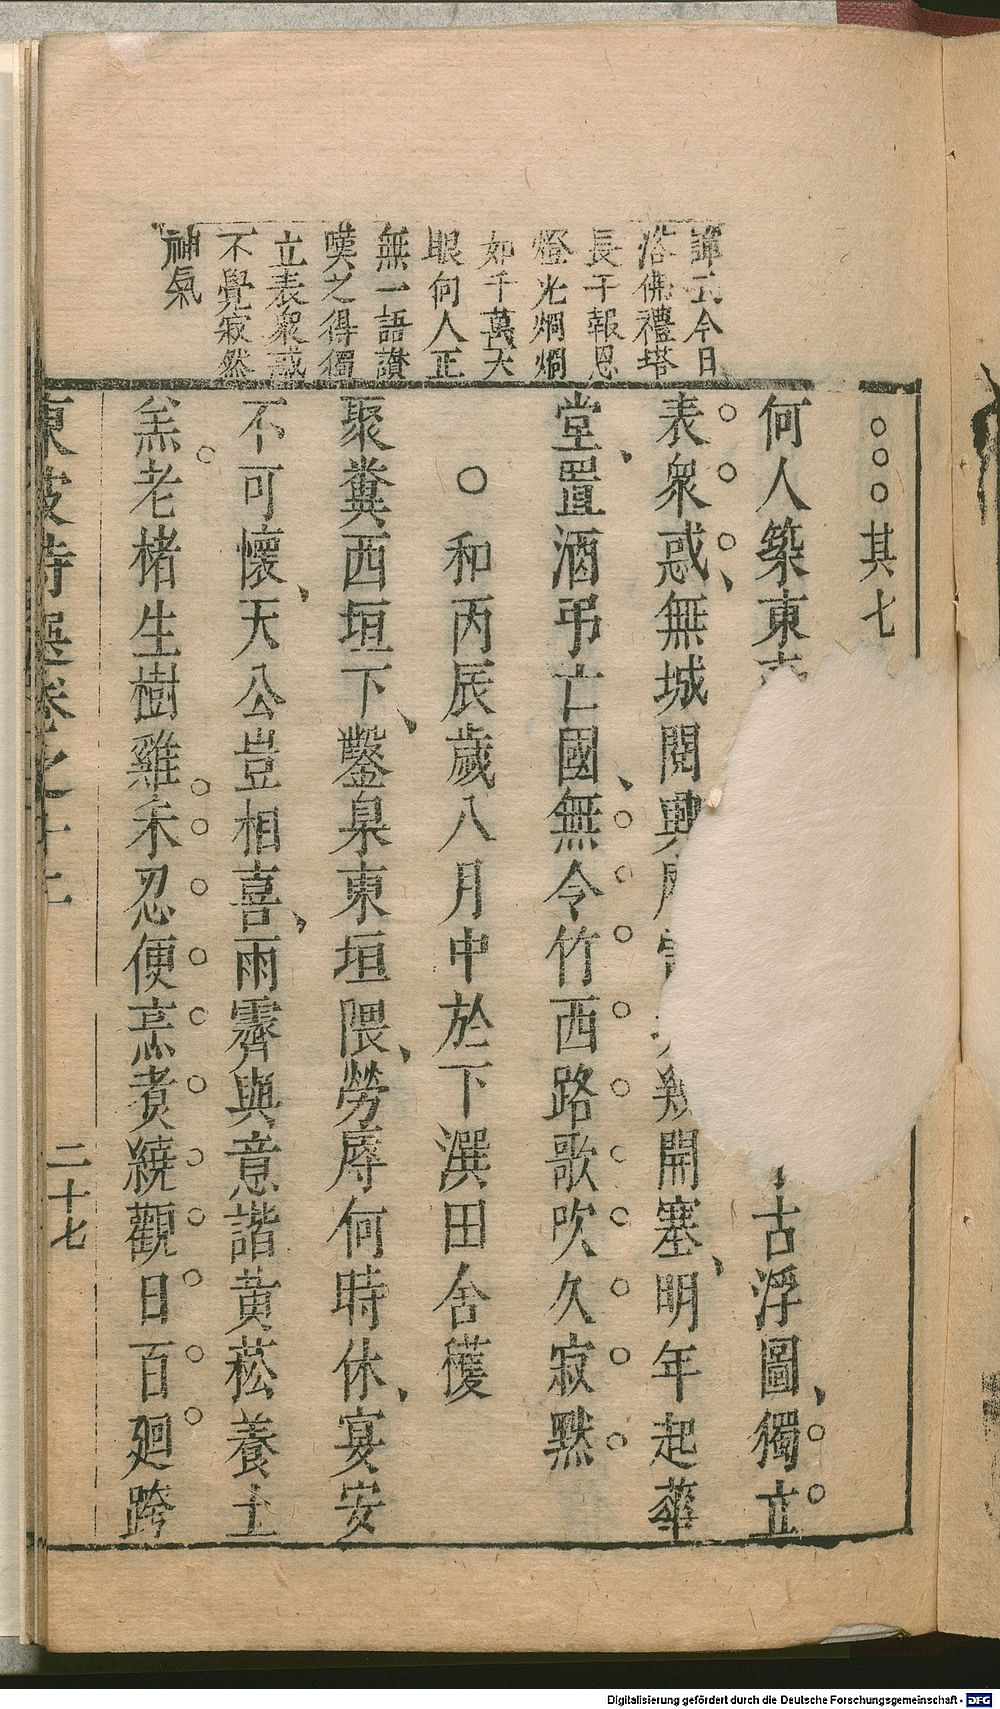 今日
浴佛禮塔
長干報恩
燈光烱烱
如千萬大
眼何人正
無一語讚
嘆之得獨
立表衆惑
不覺寂然
神氣
其七
何人築東
古浮圖獨立
表衆惑無城閱興
開塞明年起華
堂置酒弔亡國無令竹西路歌吹久寂黙
○和丙辰歲八月中於下潠田舍穫
聚糞西垣下鑿泉東垣隈勞辱何時休宴安
不可懷天公豈相喜雨霽與意諧黃菘養土
羔老楮生樹雞未忍便烹煮繞觀日百廻跨
東坡詩選卷之十二
二十七
Digitalisierung gefördert durch die Deutsche Forschungsgemeinschaft - DFG